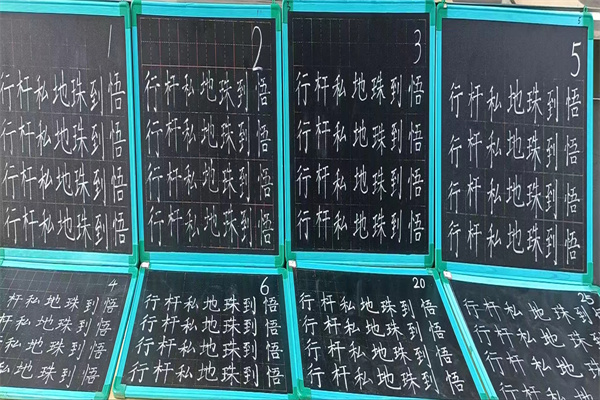 1
行杆私地珠到悟
行杆私地珠到悟
行杆私地珠到悟
行杆私地珠到悟
2
行杆私地珠到悟
行杆私地珠到悟
行杆私地珠到悟
行杆私地珠到悟
3
行杆私地珠到悟
行杆私地珠到悟
行杆私地珠到悟
行杆私地珠到悟
5
行杆私地珠到悟
行杆私地珠到悟
行杆私地珠到悟
行杆私地珠到悟
4
杆私地珠到悟
杆私地珠到悟
私地珠到悟
私地珠到悟
6
行杆私地珠到悟
行杆私地珠到悟
行杆私地珠到悟
行杆私地珠到悟
20
行杆私地珠到悟
行杆私地珠到悟
行杆私地珠到悟
行杆私地珠到悟
25
行杆私地珠到悟
行杆私地珠到
行杆私地珠到
行杆私地珠